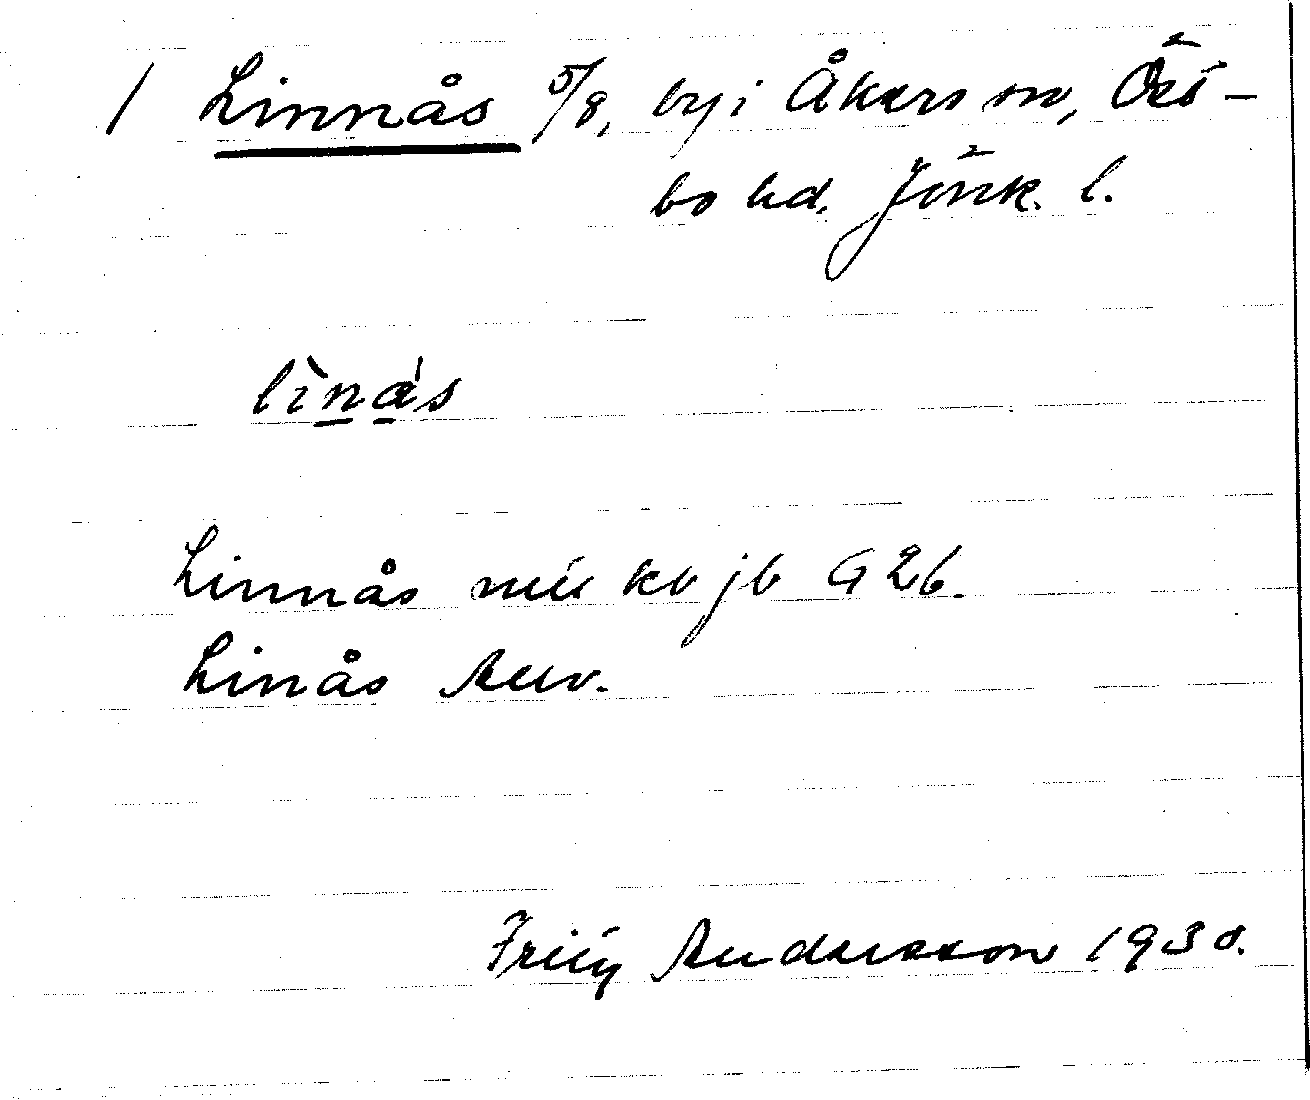 / Linnås 5/8, by i Åkers sn, Öst-
bo hd. Jönk. l.
lìnás
Linnås mtl kb jb G 26.
Linås Allm.
Fritz Andersson 1930.